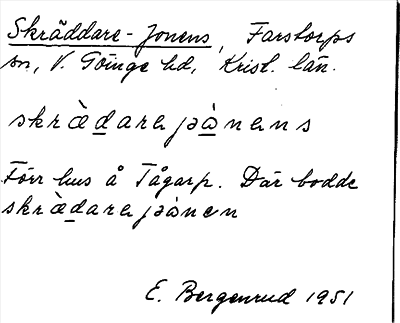 Skräddare-Jonens, Farstorps
sn, V. Göinge hd, Krist. län.
skrä̀dara jɔ̀nans
Förr hus å Tågarp. Där bodde
skrä̀dara jɔ̀nen
E. Bergenrud 1951